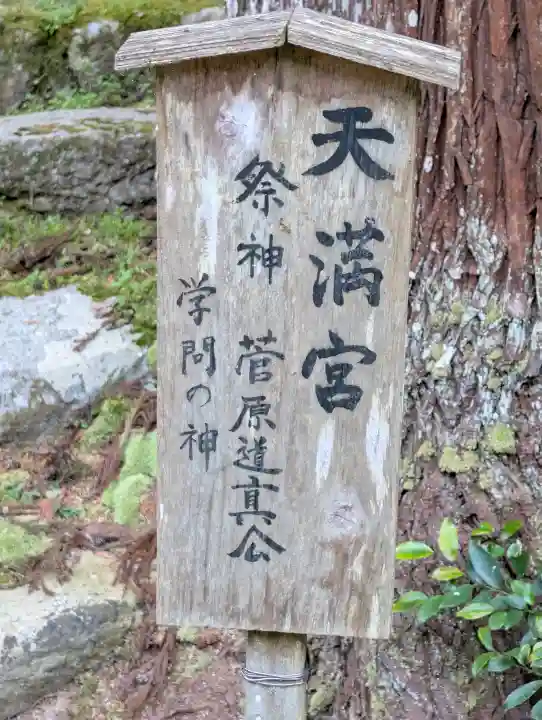 天満宮
祭神 菅原道真公
学問の神